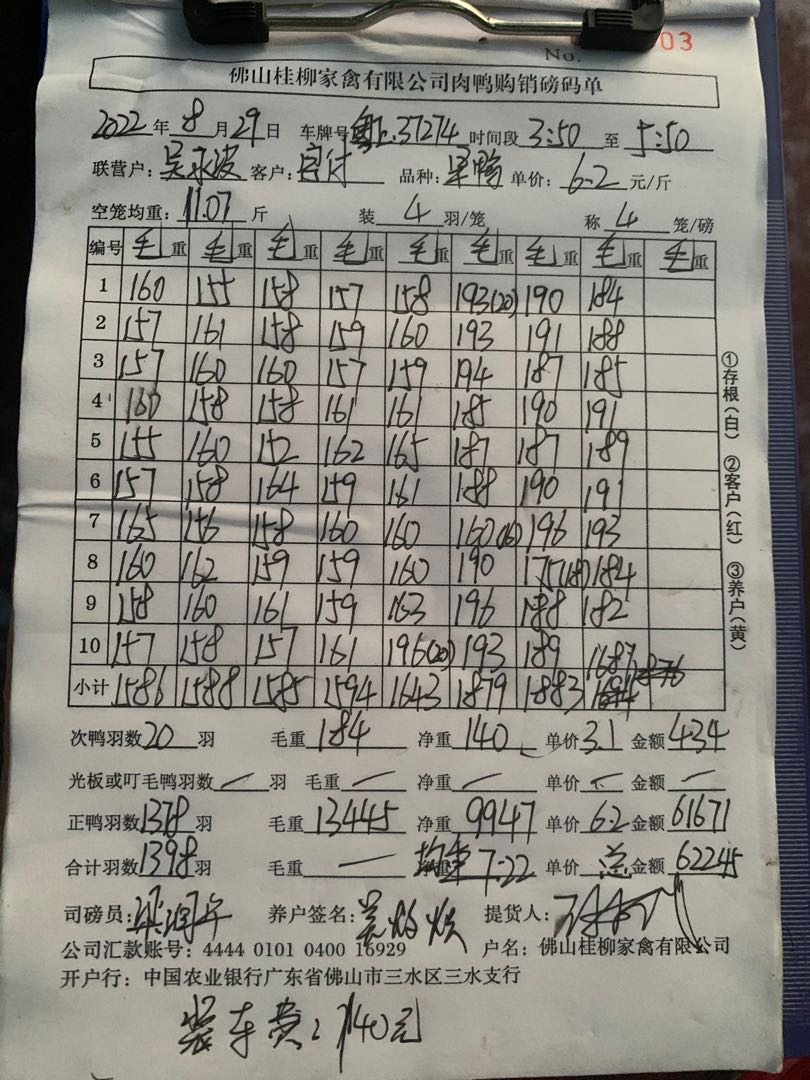 No. 03
佛山桂柳家禽有限公司肉鸭购销磅码单
2022年8月29日 车牌号 37274 时间段 3:50 至 5:50
联营户:吴永波 客户: 品种: 鸭 单价:6.2 元/斤
空笼均重:11.07 斤 装 4 羽/笼 称 4 笼/磅
编号 毛重 毛重 毛重 毛重 毛重 毛重 毛重 毛重 毛重
1 160 155 158 157 158 193(20) 190 184
2 157 161 158 159 160 193 191 188
3 157 160 160 157 159 194 187 185
4 160 158 158 161 161 185 190 191
5 155 160 152 162 165 187 187 189
6 157 158 164 159 161 188 190 191
7 165 156 158 160 160 160(16) 196 193
8 160 162 159 159 160 190 175(18) 184
9 158 160 161 159 163 196 188 182
10 157 158 157 161 196(20) 193 189 1687
小计 1586 1588 1585 1594 1643 1879 1883
次鸭羽数 20 羽 毛重 184 净重 140 单价 3.1 金额 434
光板或叮毛鸭羽数 — 羽 毛重 — 净重 — 单价 — 金额 —
正鸭羽数 1378 羽 毛重 13445 净重 9947 单价 6.2 金额 61671
合计羽数 1398 羽 毛重 — 均重 7.22 单价 总 金额 62245
司磅员:梁润华 养户签名: 提货人:
公司汇款账号:4444 0101 0400 16929 户名:佛山桂柳家禽有限公司
开户行:中国农业银行广东省佛山市三水区三水支行
装车费:140元
①存根(白) ②客户(红) ③养户(黄)